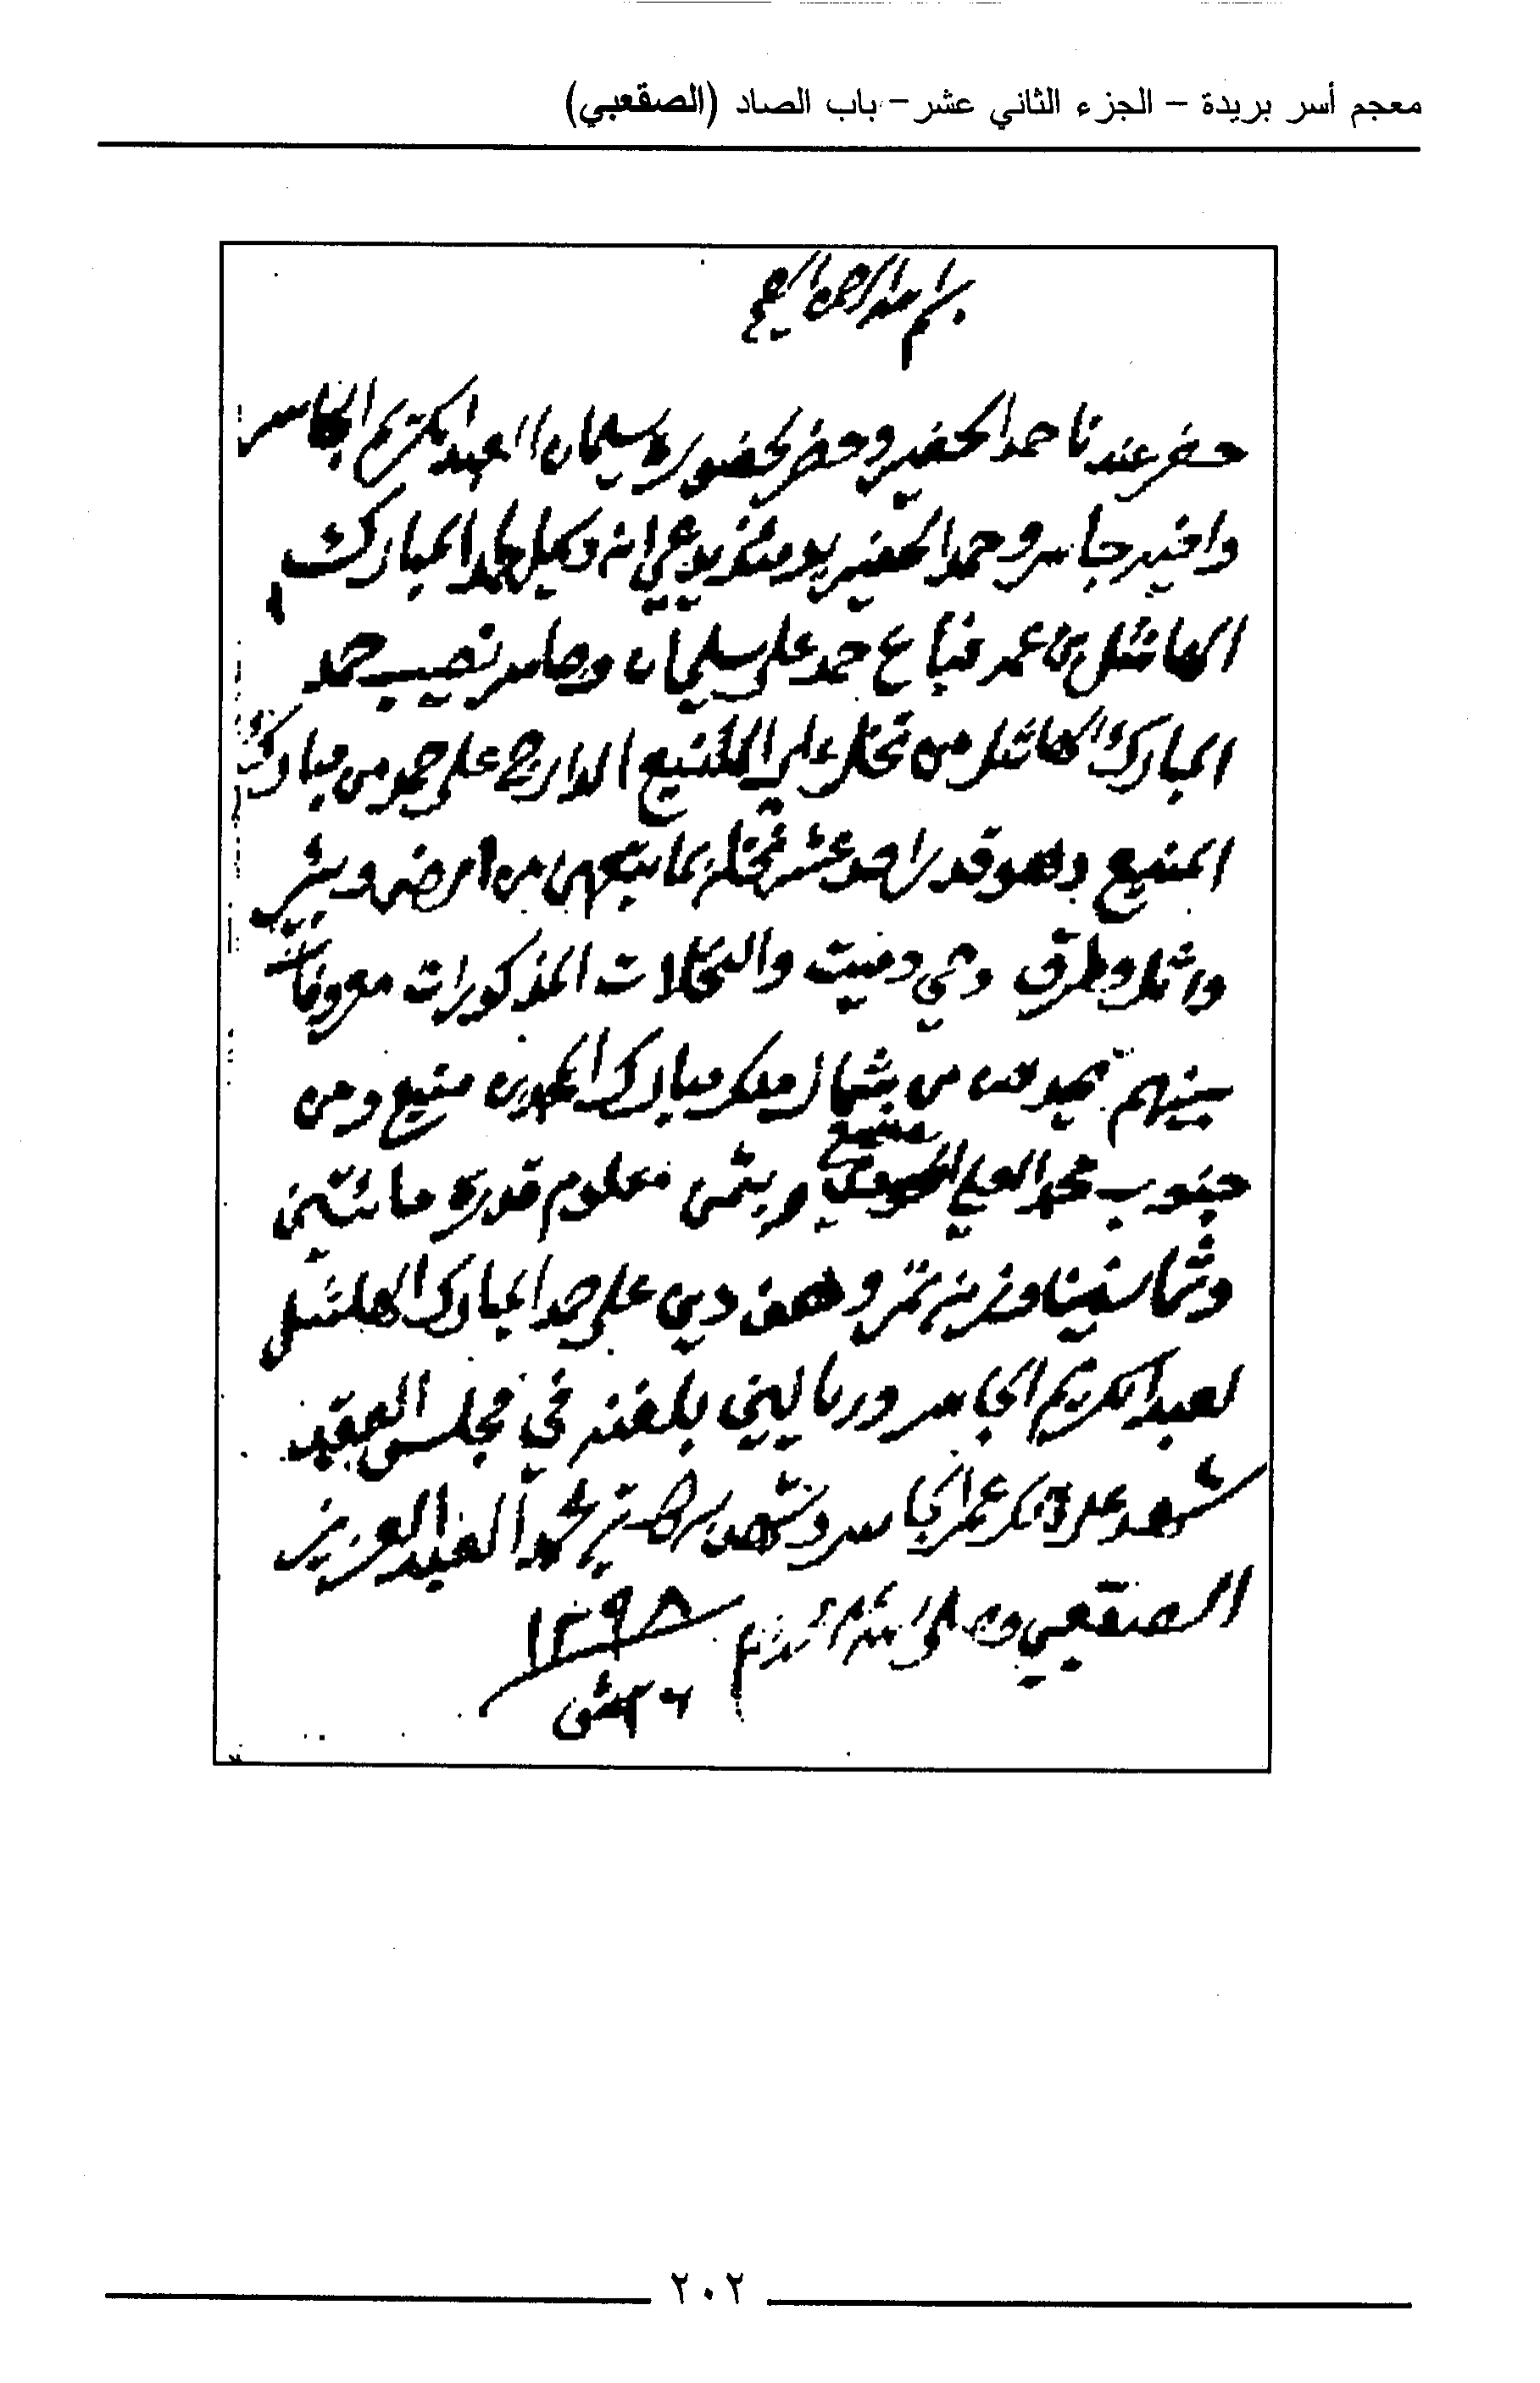 معجم أسر بريدة – الجزء الثاني عشر – باب الصاد (الصقعبي)
بسم الله الرحمن الرحيم
حضر عندنا حمد الخضير وحضر لحضوره سليمان العبد الكريم الجاسر
واخيه جاسر وحمد الخضير يومئذ يدعي انه وكيل لحمد المبارك
بن عمر فباع حمد على سليمان وجاسر نصيب حمد
المبارك من نخل الدارج على حمد من مبارك
المنيع وهو قدر احد عشر نخله بما يتبعهن من ارض وبئر
واثل وطرق وحي وميت والنخلات المذكورات معروفات
بينهم يحدهن من شمال ملك مبارك منيع ومن
جنوب محمد العلي وبثمن معلوم قدره مائتين
وثمانين وزنه تمر وهن دين على حمد المبارك
لعبد الكريم الجاسر وريالين بلغنه في مجلس العقد
شهد على ذلك عمر الجاسر وشهد به كاتبه محمد العبد العزيز
الصقعبي وصلى الله على محمد وسلم ١٢٩٨
٢٦ ش
٢٠٢